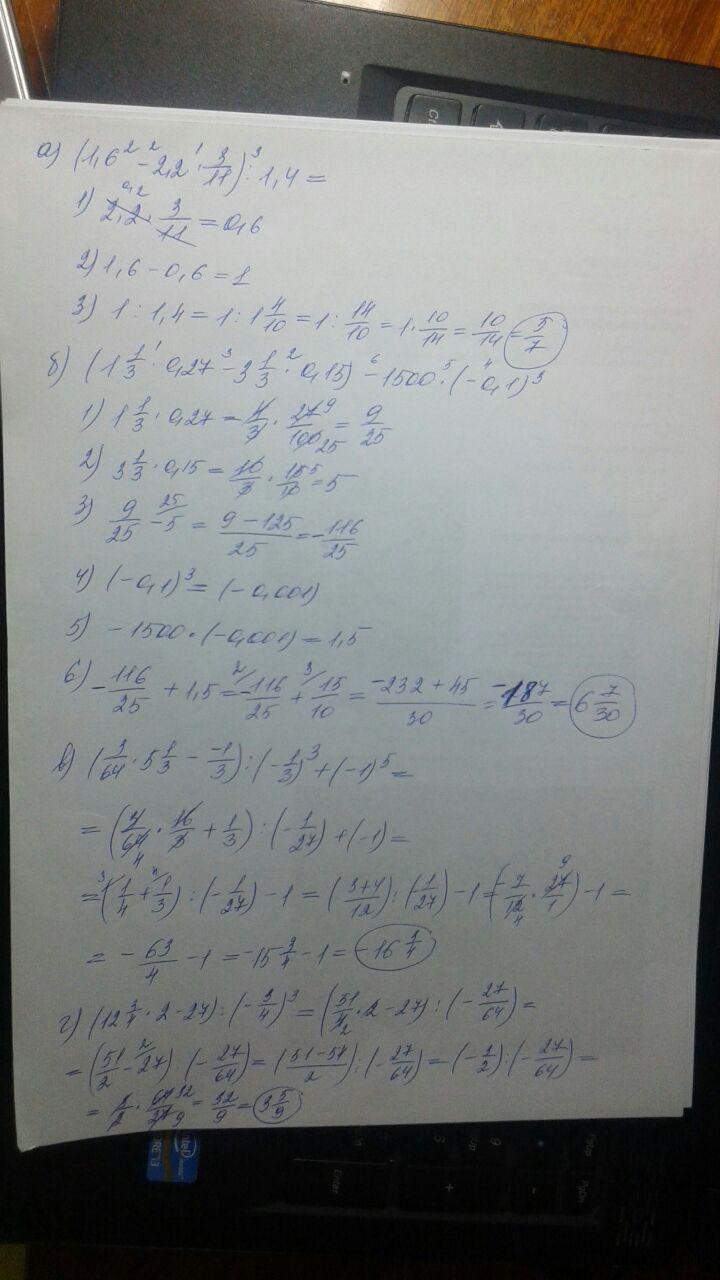 а) (1,6² - 2,2 · 3/11) : 1,4 =
1) 2,2 · 3/11 = 0,6
2) 1,6 - 0,6 = 1
3) 1 : 1,4 = 1 : 1 4/10 = 1 : 14/10 = 1 · 10/14 = 10/14 = 5/7
б) (1 1/3 · 0,27 - 3 1/3 · 0,15) - 1500 · (-0,1)³
1) 1 1/3 · 0,27 = 4/3 · 27/100 = 9/25
2) 3 1/3 · 0,15 = 10/3 · 15/10 = 5
3) 9/25 - 5 = (9 - 125)/25 = -116/25
4) (-0,1)³ = (-0,001)
5) -1500 · (-0,001) = 1,5
6) -116/25 + 1,5 = -116/25 + 15/10 = (-232 + 45)/30 = -187/30 = 6 7/30
в) (3/64 · 5 1/3 - -1/3) : (-1/3)³ + (-1)⁵ =
= (3/64 · 16/3 + 1/3) : (-1/27) + (-1) =
= (1/4 + 1/3) : (-1/27) - 1 = ((3+4)/12) : (-1/27) - 1 = (-7/12 · 27/1) - 1 =
= -63/4 - 1 = -15 3/4 - 1 = -16 3/4
г) (12 3/4 · 2 - 27) : (-3/4)³ = (51/4 · 2 - 27) : (-27/64) =
= (51/2 - 27) : (-27/64) = ((51 - 54)/2) : (-27/64) = (-3/2) : (-27/64) =
= 3/2 · 64/27 = 32/9 = 3 5/9
Ctrl
intel
CORE i3
Enter
+
-
PgUp
PgDn